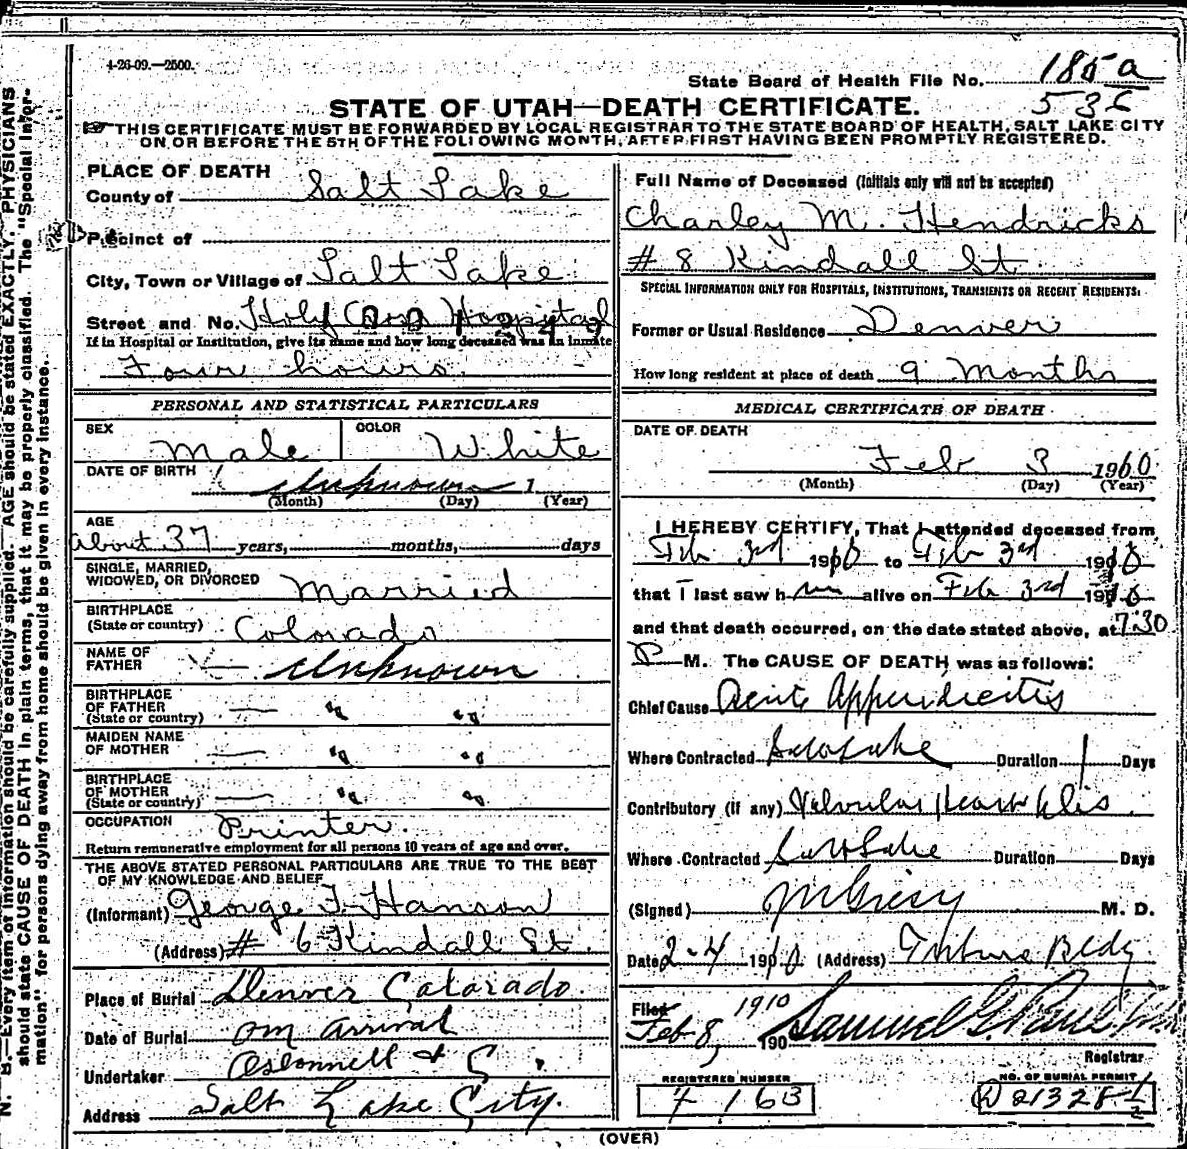 4-26-09.—2500.
State Board of Health File No. 185a
536
STATE OF UTAH—DEATH CERTIFICATE.
THIS CERTIFICATE MUST BE FORWARDED BY LOCAL REGISTRAR TO THE STATE BOARD OF HEALTH, SALT LAKE CITY
ON OR BEFORE THE 5TH OF THE FOLLOWING MONTH, AFTER FIRST HAVING BEEN PROMPTLY REGISTERED.
PLACE OF DEATH
County of Salt Lake
Precinct of
City, Town or Village of Salt Lake
Street and No. Holy Cross Hospital
If in Hospital or Institution, give its name and how long deceased was an inmate
Four hours.
Full Name of Deceased (Initials only will not be accepted)
Charley M. Hendricks
# 8 Kindall St.
SPECIAL INFORMATION ONLY FOR HOSPITALS, INSTITUTIONS, TRANSIENTS OR RECENT RESIDENTS:
Former or Usual Residence Denver
How long resident at place of death 9 Months
PERSONAL AND STATISTICAL PARTICULARS
SEX Male COLOR White
DATE OF BIRTH
Unknown 1
(Month) (Day) (Year)
AGE
About 37 years, months, days
SINGLE, MARRIED,
WIDOWED, OR DIVORCED Married
BIRTHPLACE
(State or country) Colorado
NAME OF
FATHER Unknown
BIRTHPLACE
OF FATHER
(State or country) — " "
MAIDEN NAME
OF MOTHER — " "
BIRTHPLACE
OF MOTHER
(State or country) — " "
OCCUPATION Printer.
Return remunerative employment for all persons 10 years of age and over.
THE ABOVE STATED PERSONAL PARTICULARS ARE TRUE TO THE BEST
OF MY KNOWLEDGE AND BELIEF
(Informant) George F. Hanson
(Address) # 6 Kindall St.
Place of Burial Denver Colorado.
Date of Burial on arrival
Undertaker O'Donnell & Co
Address Salt Lake City.
MEDICAL CERTIFICATE OF DEATH
DATE OF DEATH
Feb 3 1910
(Month) (Day) (Year)
I HEREBY CERTIFY, That I attended deceased from
Feb 3rd 1910 to Feb 3rd 1910
that I last saw him alive on Feb 3rd 1910
and that death occurred, on the date stated above, at 7:30
P M. The CAUSE OF DEATH was as follows:
Chief Cause Acute Appendicitis
Where Contracted Salt Lake Duration 1 Days
Contributory (if any) Valvular Heart Dis.
Where Contracted Salt Lake Duration Days
(Signed) M. D.
Date 2-4 1910 (Address) Tribune Bldg
Filed
Feb 8, 1910 190 Samuel G. Paul
Registrar
REGISTERED NUMBER
7 163
NO. OF BURIAL PERMIT
21328 1/2
(OVER)
N. B.—Every item of information should be carefully supplied. AGE should be stated EXACTLY. PHYSICIANS
should state CAUSE OF DEATH in plain terms, that it may be properly classified. The "Special Infor-
mation" for persons dying away from home should be given in every instance.